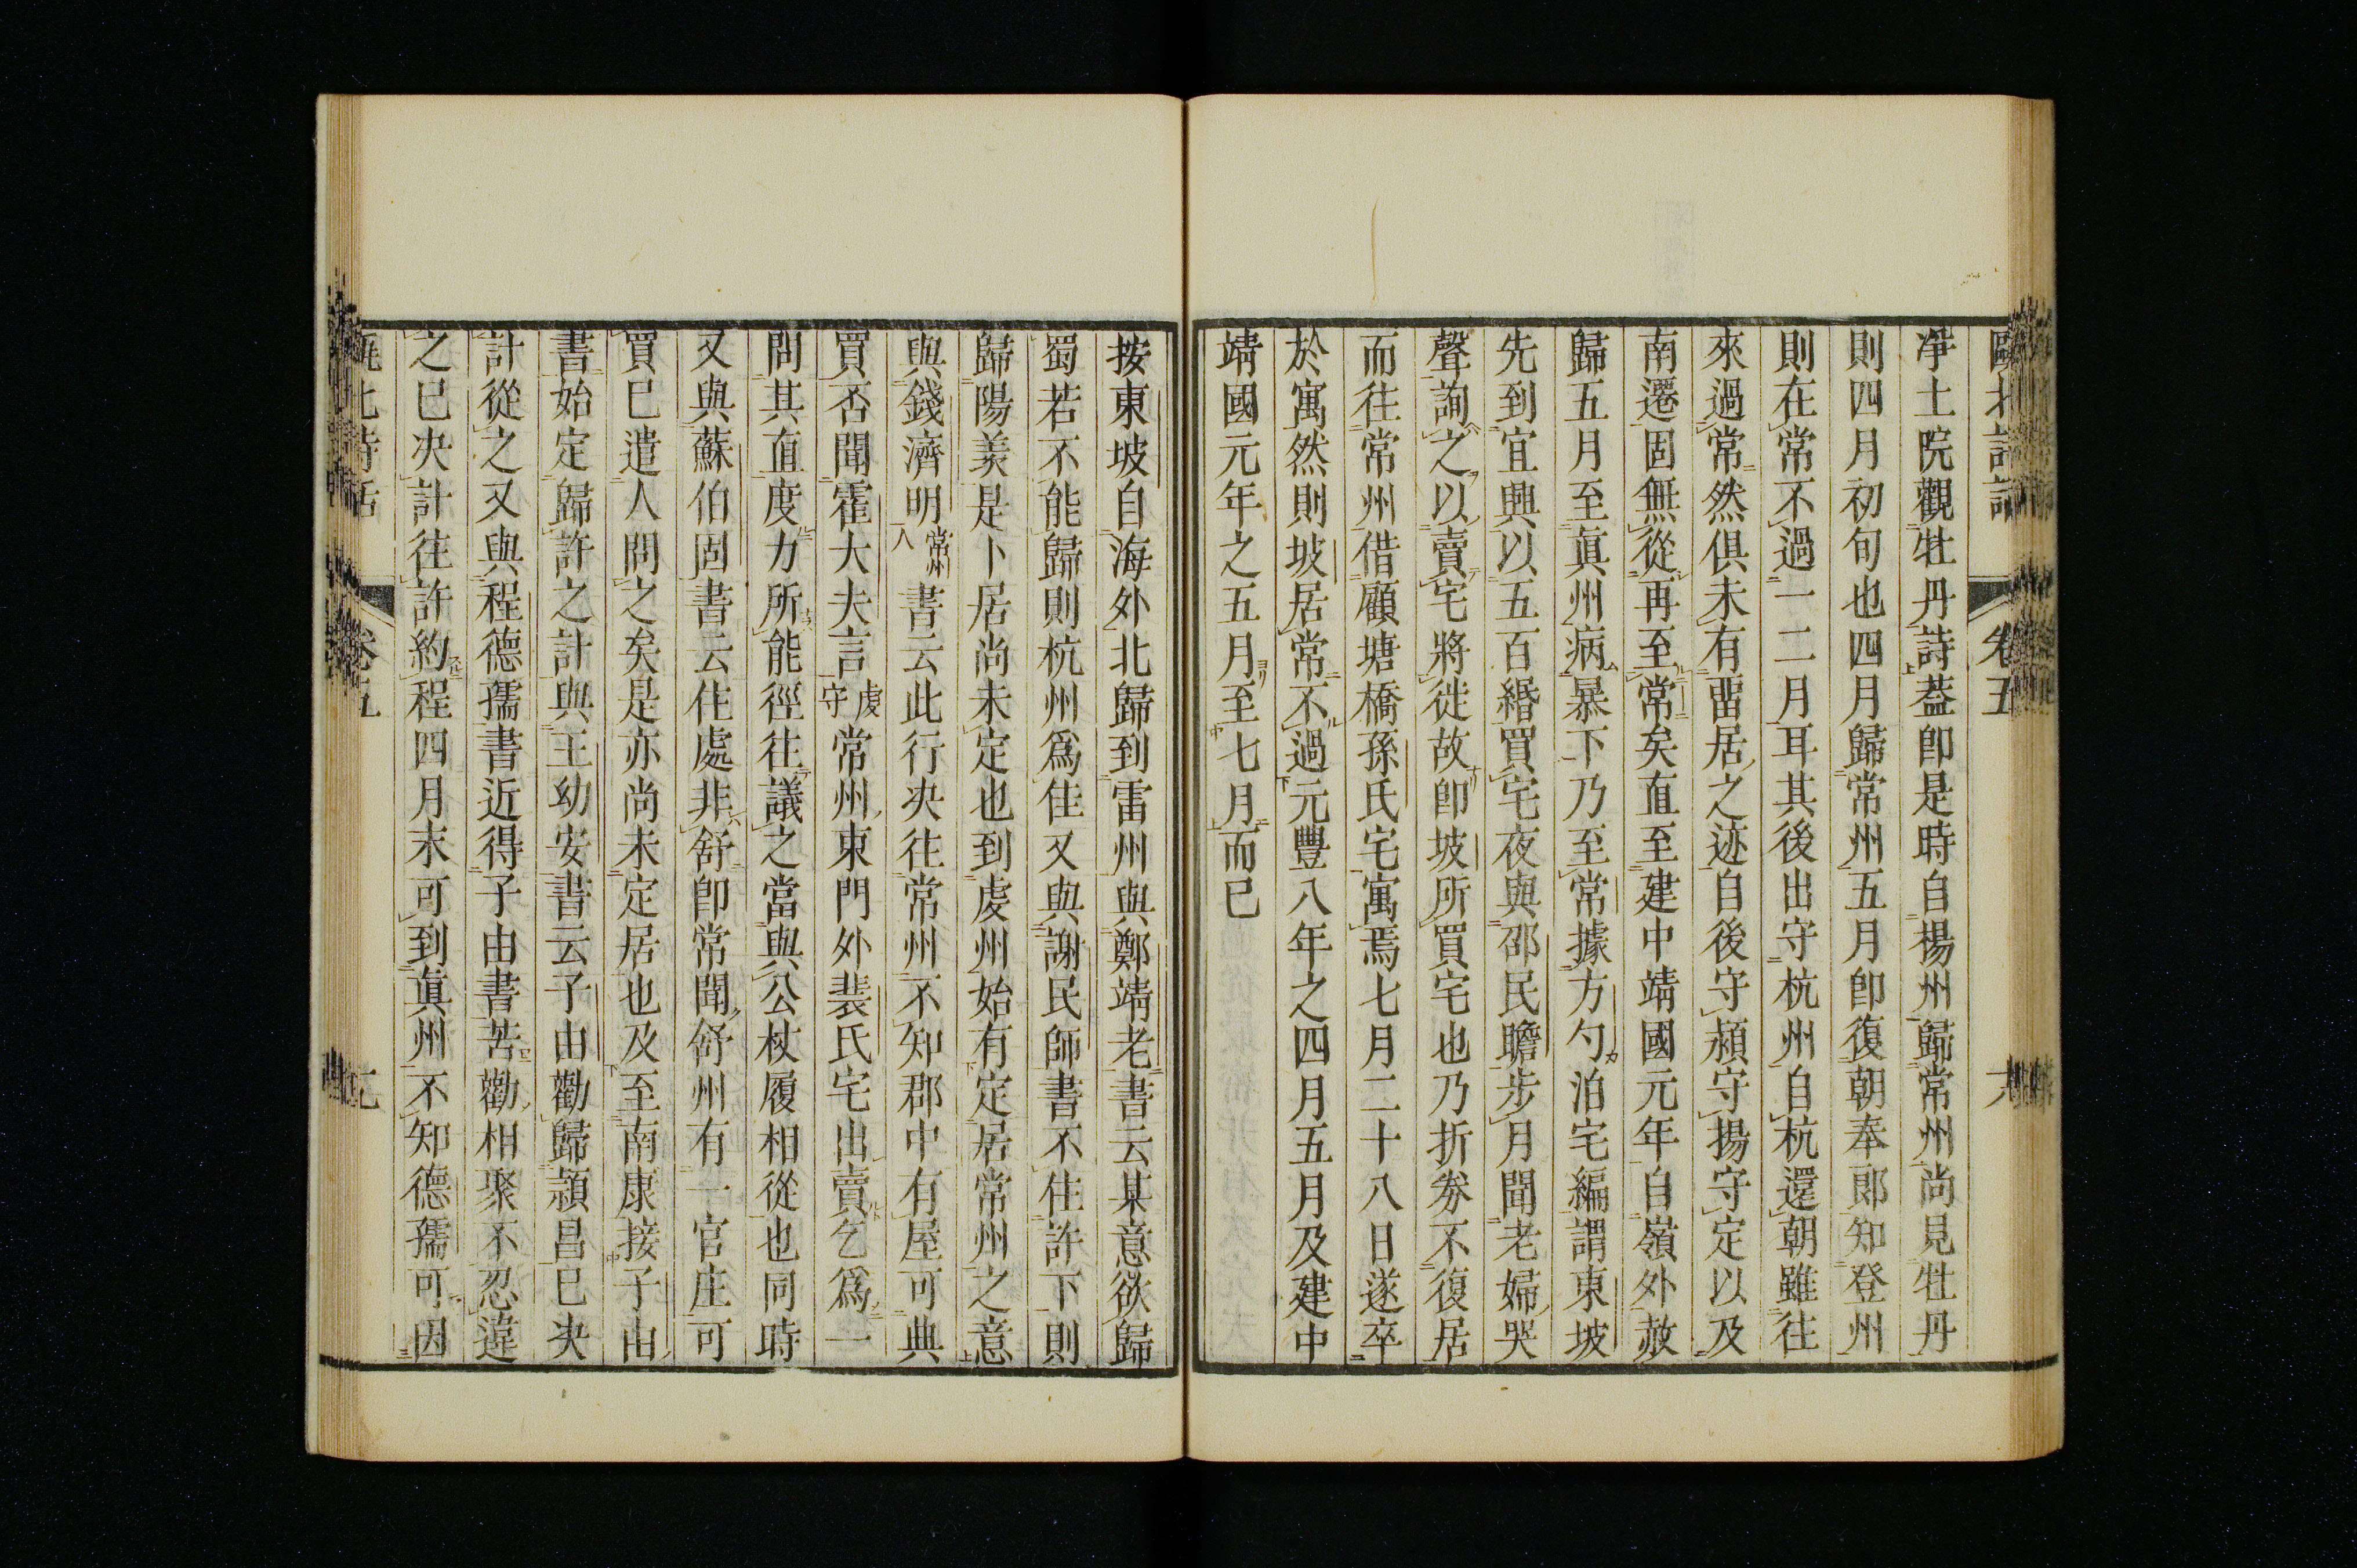 淨土院觀牡丹詩葢卽是時自揚州歸常州尚見牡丹
則四月初旬也四月歸常州五月卽復朝奉郎知登州
則在常不過一二月耳其後出守杭州自杭還朝雖往
來過常然俱未有畱居之迹自後守潁守揚守定以及
南遷固無從再至常矣直至建中靖國元年自嶺外赦
歸五月至眞州病暴下乃至常據方勺泊宅編謂東坡
先到宜興以五百緡買宅夜與邵民瞻步月聞老婦哭
聲詢之以賣宅將徙故卽坡所買宅也乃折劵不復居
而往常州借顧塘橋孫氏宅寓焉七月二十八日遂卒
於寓然則坡居常不過元豐八年之四月五月及建中
靖國元年之五月至七月而已
按東坡自海外北歸到雷州與鄭靖老書云某意欲歸
蜀若不能歸則杭州爲佳又與謝民師書不住許下則
歸陽羨是卜居尚未定也到虔州始有定居常州之意
與錢濟明常州人書云此行決往常州不知郡中有屋可典
買否聞霍大夫言虔守常州東門外裴氏宅出賣乞爲一
問其直度力所能徑往議之當與公杖履相從也同時
又與蘇伯固書云住處非舒卽常聞舒州有一官庄可
買已遣人問之矣是亦尚未定居也及至南康接子由
書始定歸許之計與王幼安書云子由勸歸潁昌已决
計從之又與程德孺書近得子由書苦勸相聚不忍違
之已决計往許約程四月末可到眞州不知德孺可因